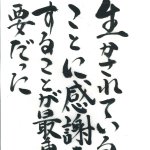 生かされている
ことに感謝
することが最
要だった